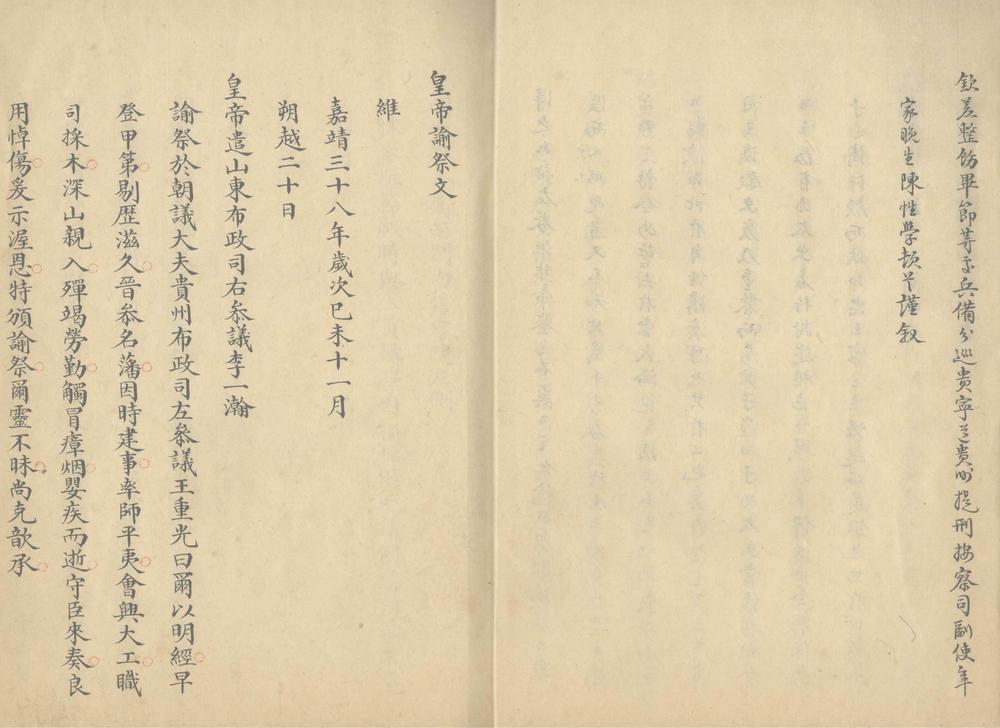 欽差整飭畢節等處兵備分巡貴寧道貴州提刑按察司副使年
家晚生陳性學頓首謹叙
皇帝諭祭文
維
嘉靖三十八年歲次巳未十一月
朔越二十日
皇帝遣山東布政司右叅議李一瀚
諭祭於朝議大夫貴州布政司左叅議王重光曰爾以明經早
登甲第剔歷滋久晉叅名藩因時建事率師平夷會興大工職
司採木深山親入殫竭勞勤觸冒瘴烟嬰疾而逝守臣來奏良
用悼傷爰示渥恩特頒諭祭爾靈不昧尚克歆承